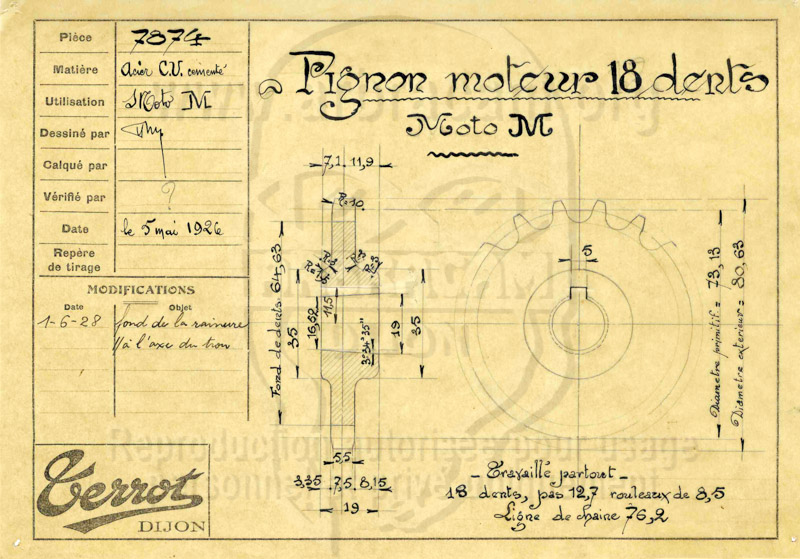 Pièce 7874
Matière Acier C.V. cementé
Utilisation Moto M
Dessiné par
Calqué par
Vérifié par ?
Date le 5 mai 1926
Repère
de tirage
MODIFICATIONS
Date Objet
1-6-28 fond de la rainure
// à l'axe du trou
Terrot
DIJON
Pignon moteur 18 dents
Moto M
7,1 11,9
R=10.
Fond de dents 64,63
35
16,52
11,5
3°34'35"
19
35
5,5
3,35 7,5 8,15
19
5
Diamètre primitif = 73,13
Diamètre extérieur = 80,63
- Travaillé partout -
18 dents, pas 12,7 rouleaux de 8,5
Ligne de chaine 76,2
Reproduction autorisée pour usage